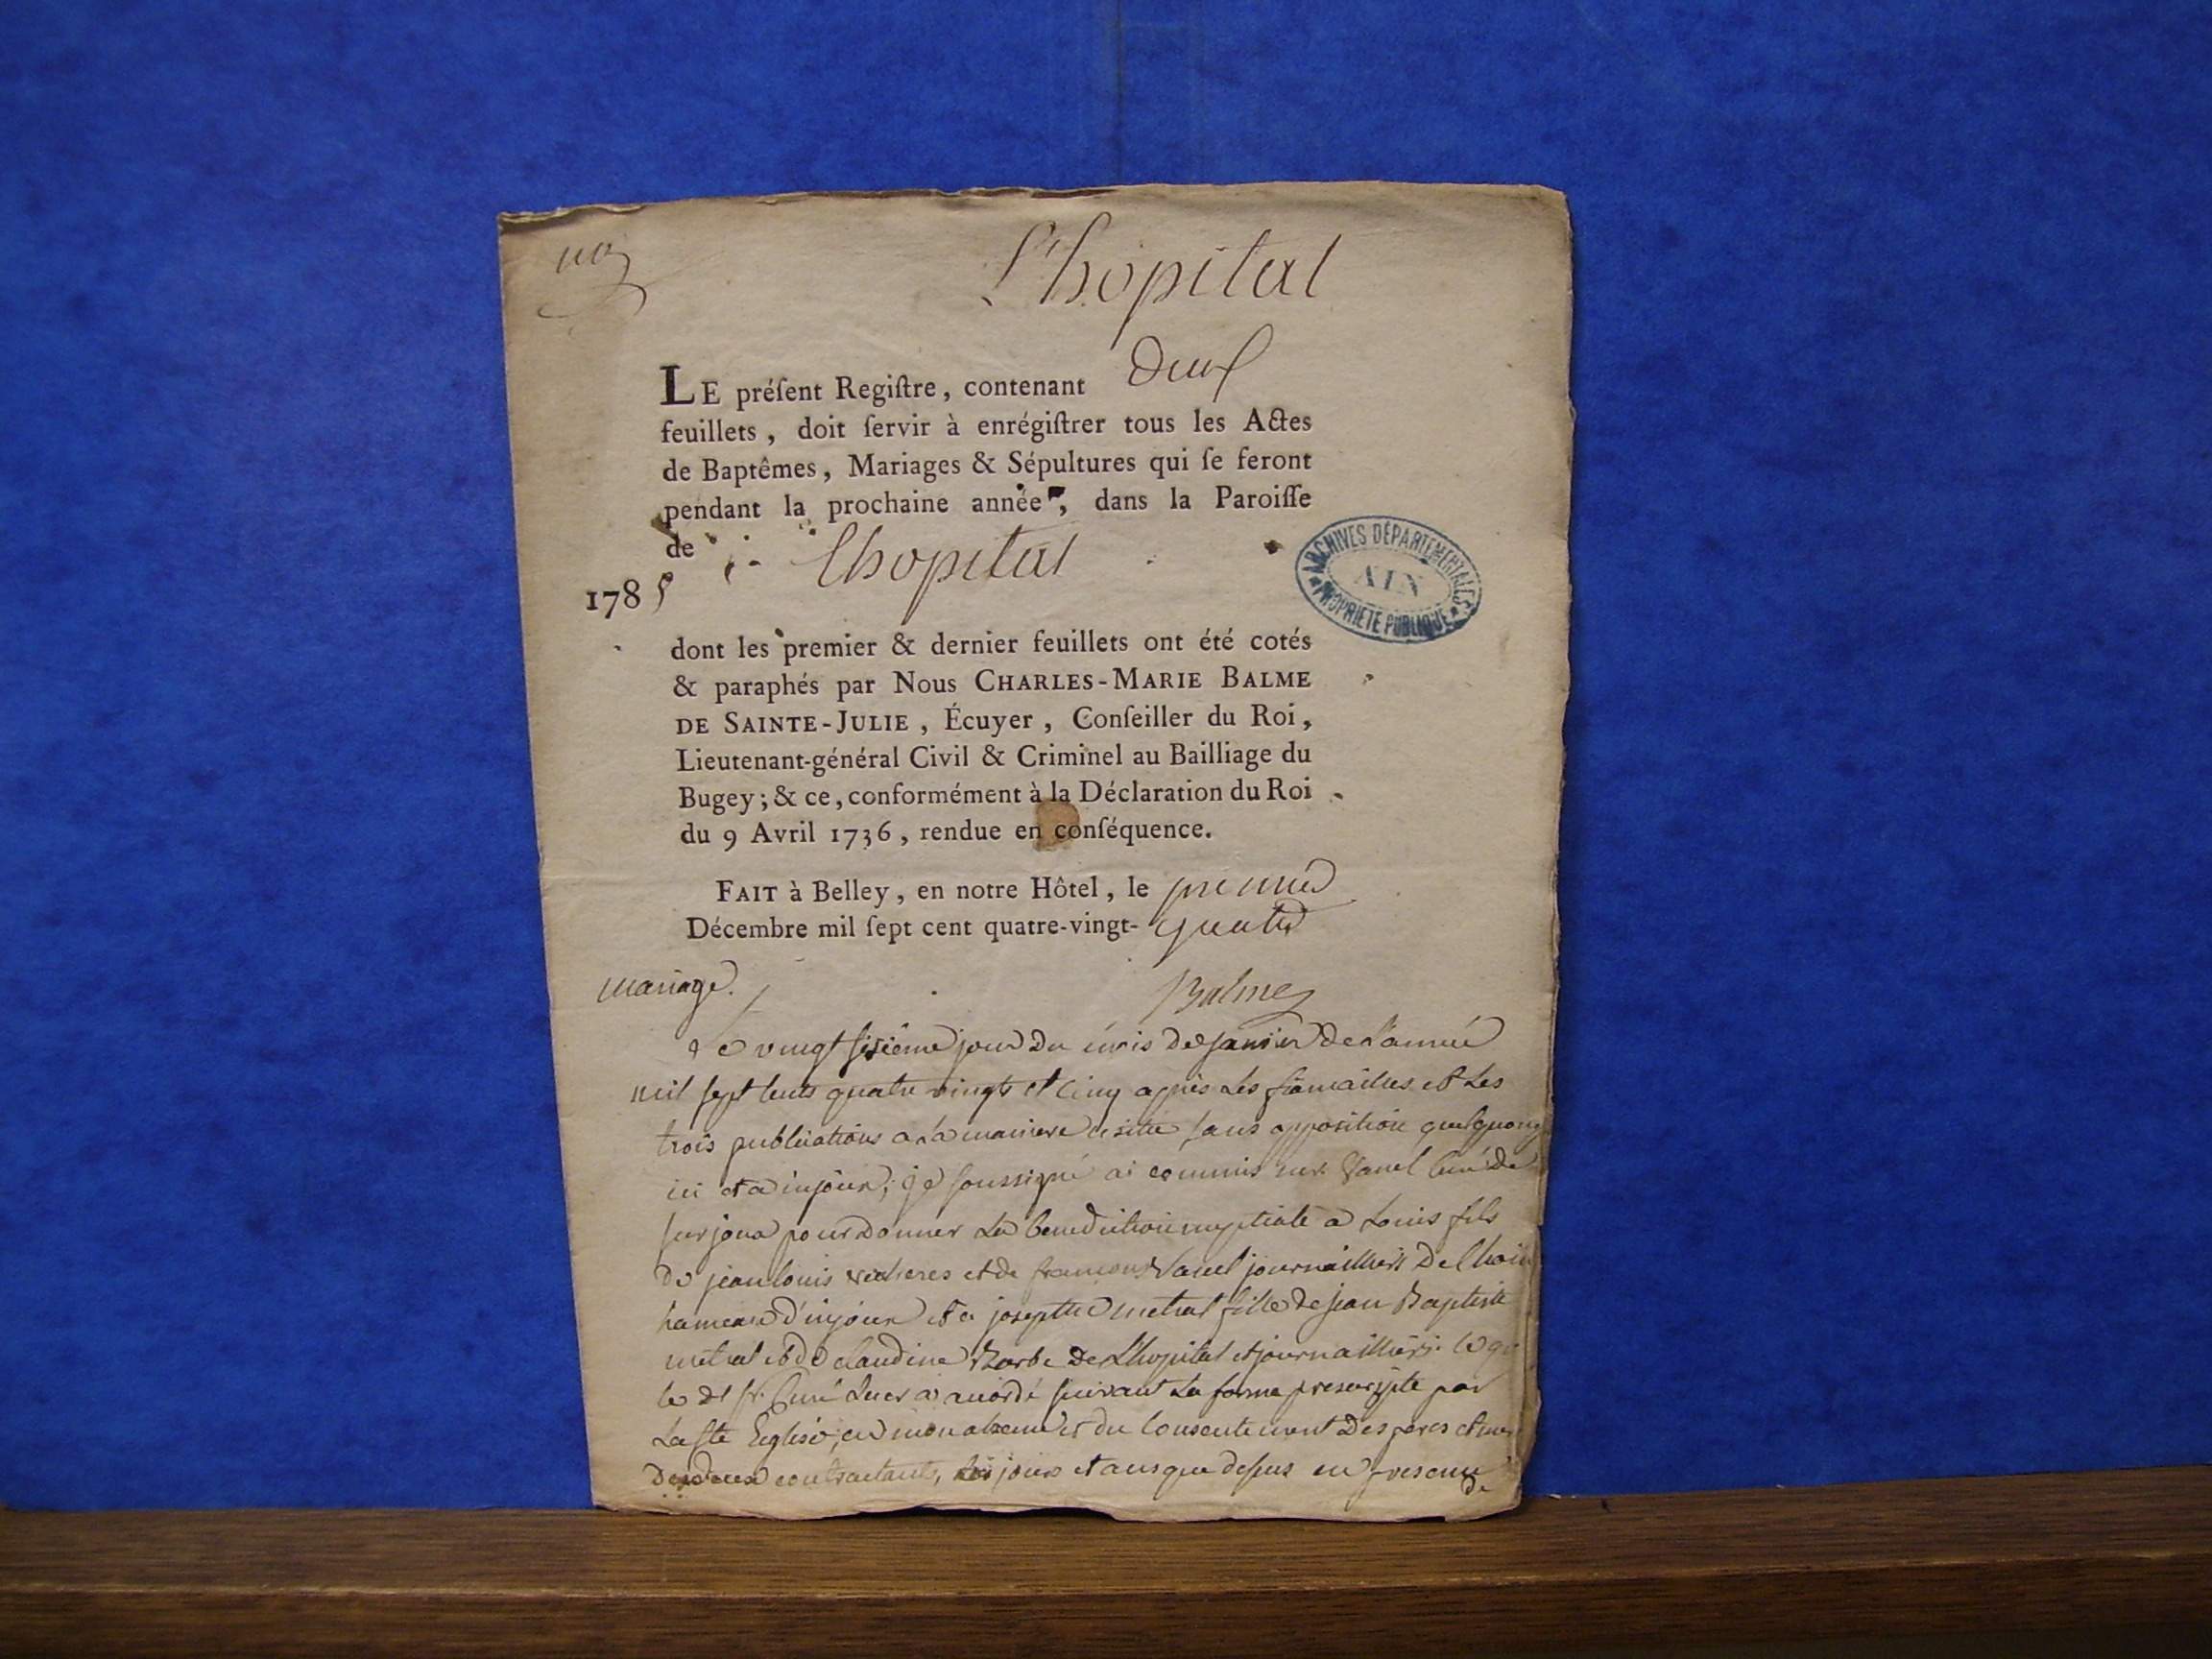 L'hopital
Deux
LE préſent Regiſtre, contenant
feuillets, doit ſervir à enrégiſtrer tous les Actes
de Baptêmes, Mariages & Sépultures qui ſe feront
pendant la prochaine année, dans la Paroiſſe
de Lhopital
1785
ARCHIVES DÉPARTEMENTALES
AIN
PROPRIETE PUBLIQUE
dont les premier & dernier feuillets ont été cotés
& paraphés par Nous CHARLES-MARIE BALME
DE SAINTE-JULIE, Écuyer, Conſeiller du Roi,
Lieutenant-général Civil & Criminel au Bailliage du
Bugey; & ce, conformément à la Déclaration du Roi
du 9 Avril 1736, rendue en conſéquence.
FAIT à Belley, en notre Hôtel, le premier
Décembre mil ſept cent quatre-vingt-quatre
Balme
mariage.
Le vingt sixième jour du mois de janvier de l'année
mil sept cents quatre vingts et cinq après les fiancailles et les
trois publications a la maniere usitée sans opposition quelquonq
ici et a injoux, je soussigné ai commis mr. curé de
surjoux pour donner la benediction nuptiale a Louis fils
de jean louis et de journailliers de
hameau d'injoux et a josephte metral fille de jean Baptiste
metral et de claudine Barbe de L'hopital et journailliers. ce
le dt sr. Curé leur a accordé suivant la forme prescripte par
La ste Eglise, en mon absence et du consentement des peres et
des deux contractants, jour et an que dessus en presence
de